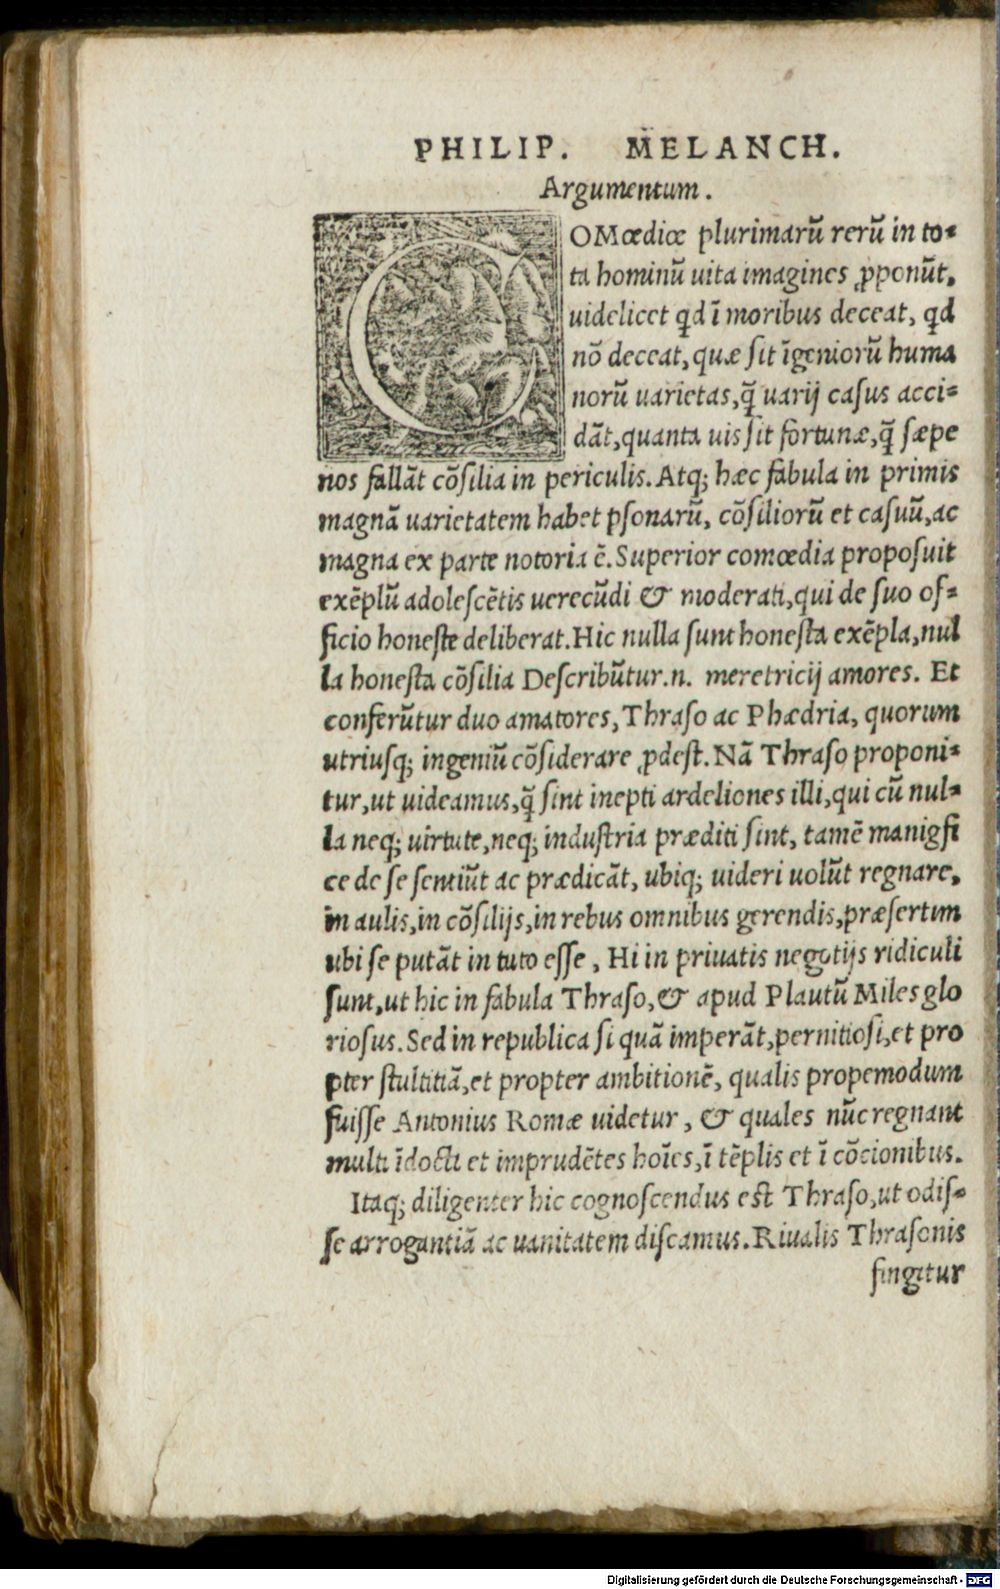 PHILIP. MELANCH.
Argumentum.
COMœdiæ plurimarũ rerũ in to-
ta hominũ uita imagines ꝓponũt,
uidelicet qd ĩ moribus deceat, qd
nõ deceat, quæ sit ĩgeniorũ huma
norũ uarietas, q̃ uarij casus acci-
dãt, quanta uis sit fortunæ, q̃ sæpe
nos fallãt cõsilia in periculis. Atq; hæc fabula in primis
magnã uarietatem habet psonarũ, cõsiliorũ et casuũ, ac
magna ex parte notoria ẽ. Superior comœdia proposuit
exẽplũ adolescẽtis uerecũdi & moderati, qui de suo of-
ficio honeste deliberat. Hic nulla sunt honesta exẽpla, nul
la honesta cõsilia Describũtur .n. meretricij amores. Et
conferũtur duo amatores, Thraso ac Phædria, quorum
utriusq; ingeniũ cõsiderare ꝓdest. Nã Thraso proponi-
tur, ut uideamus, q̃ sint inepti ardeliones illi, qui cũ nul-
la neq; uirtute, neq; industria præditi sint, tamẽ manigfi
ce de se sentiũt ac prædicãt, ubiq; uideri uolũt regnare,
in aulis, in cõsilijs, in rebus omnibus gerendis, præsertim
ubi se putãt in tuto esse, Hi in priuatis negotijs ridiculi
sunt, ut hic in fabula Thraso, & apud Plautũ Miles glo
riosus. Sed in republica si quã imperãt, pernitiosi, et pro
pter stultitiã, et propter ambitionẽ, qualis propemodum
fuisse Antonius Romæ uidetur, & quales nũc regnant
multi ĩdocti et imprudẽtes hoĩes, ĩ tẽplis et ĩ cõcionibus.
Itaq; diligenter hic cognoscendus est Thraso, ut odis-
se arrogantiã ac uanitatem discamus. Riualis Thrasonis
fingitur
Digitalisierung gefördert durch die Deutsche Forschungsgemeinschaft - DFG